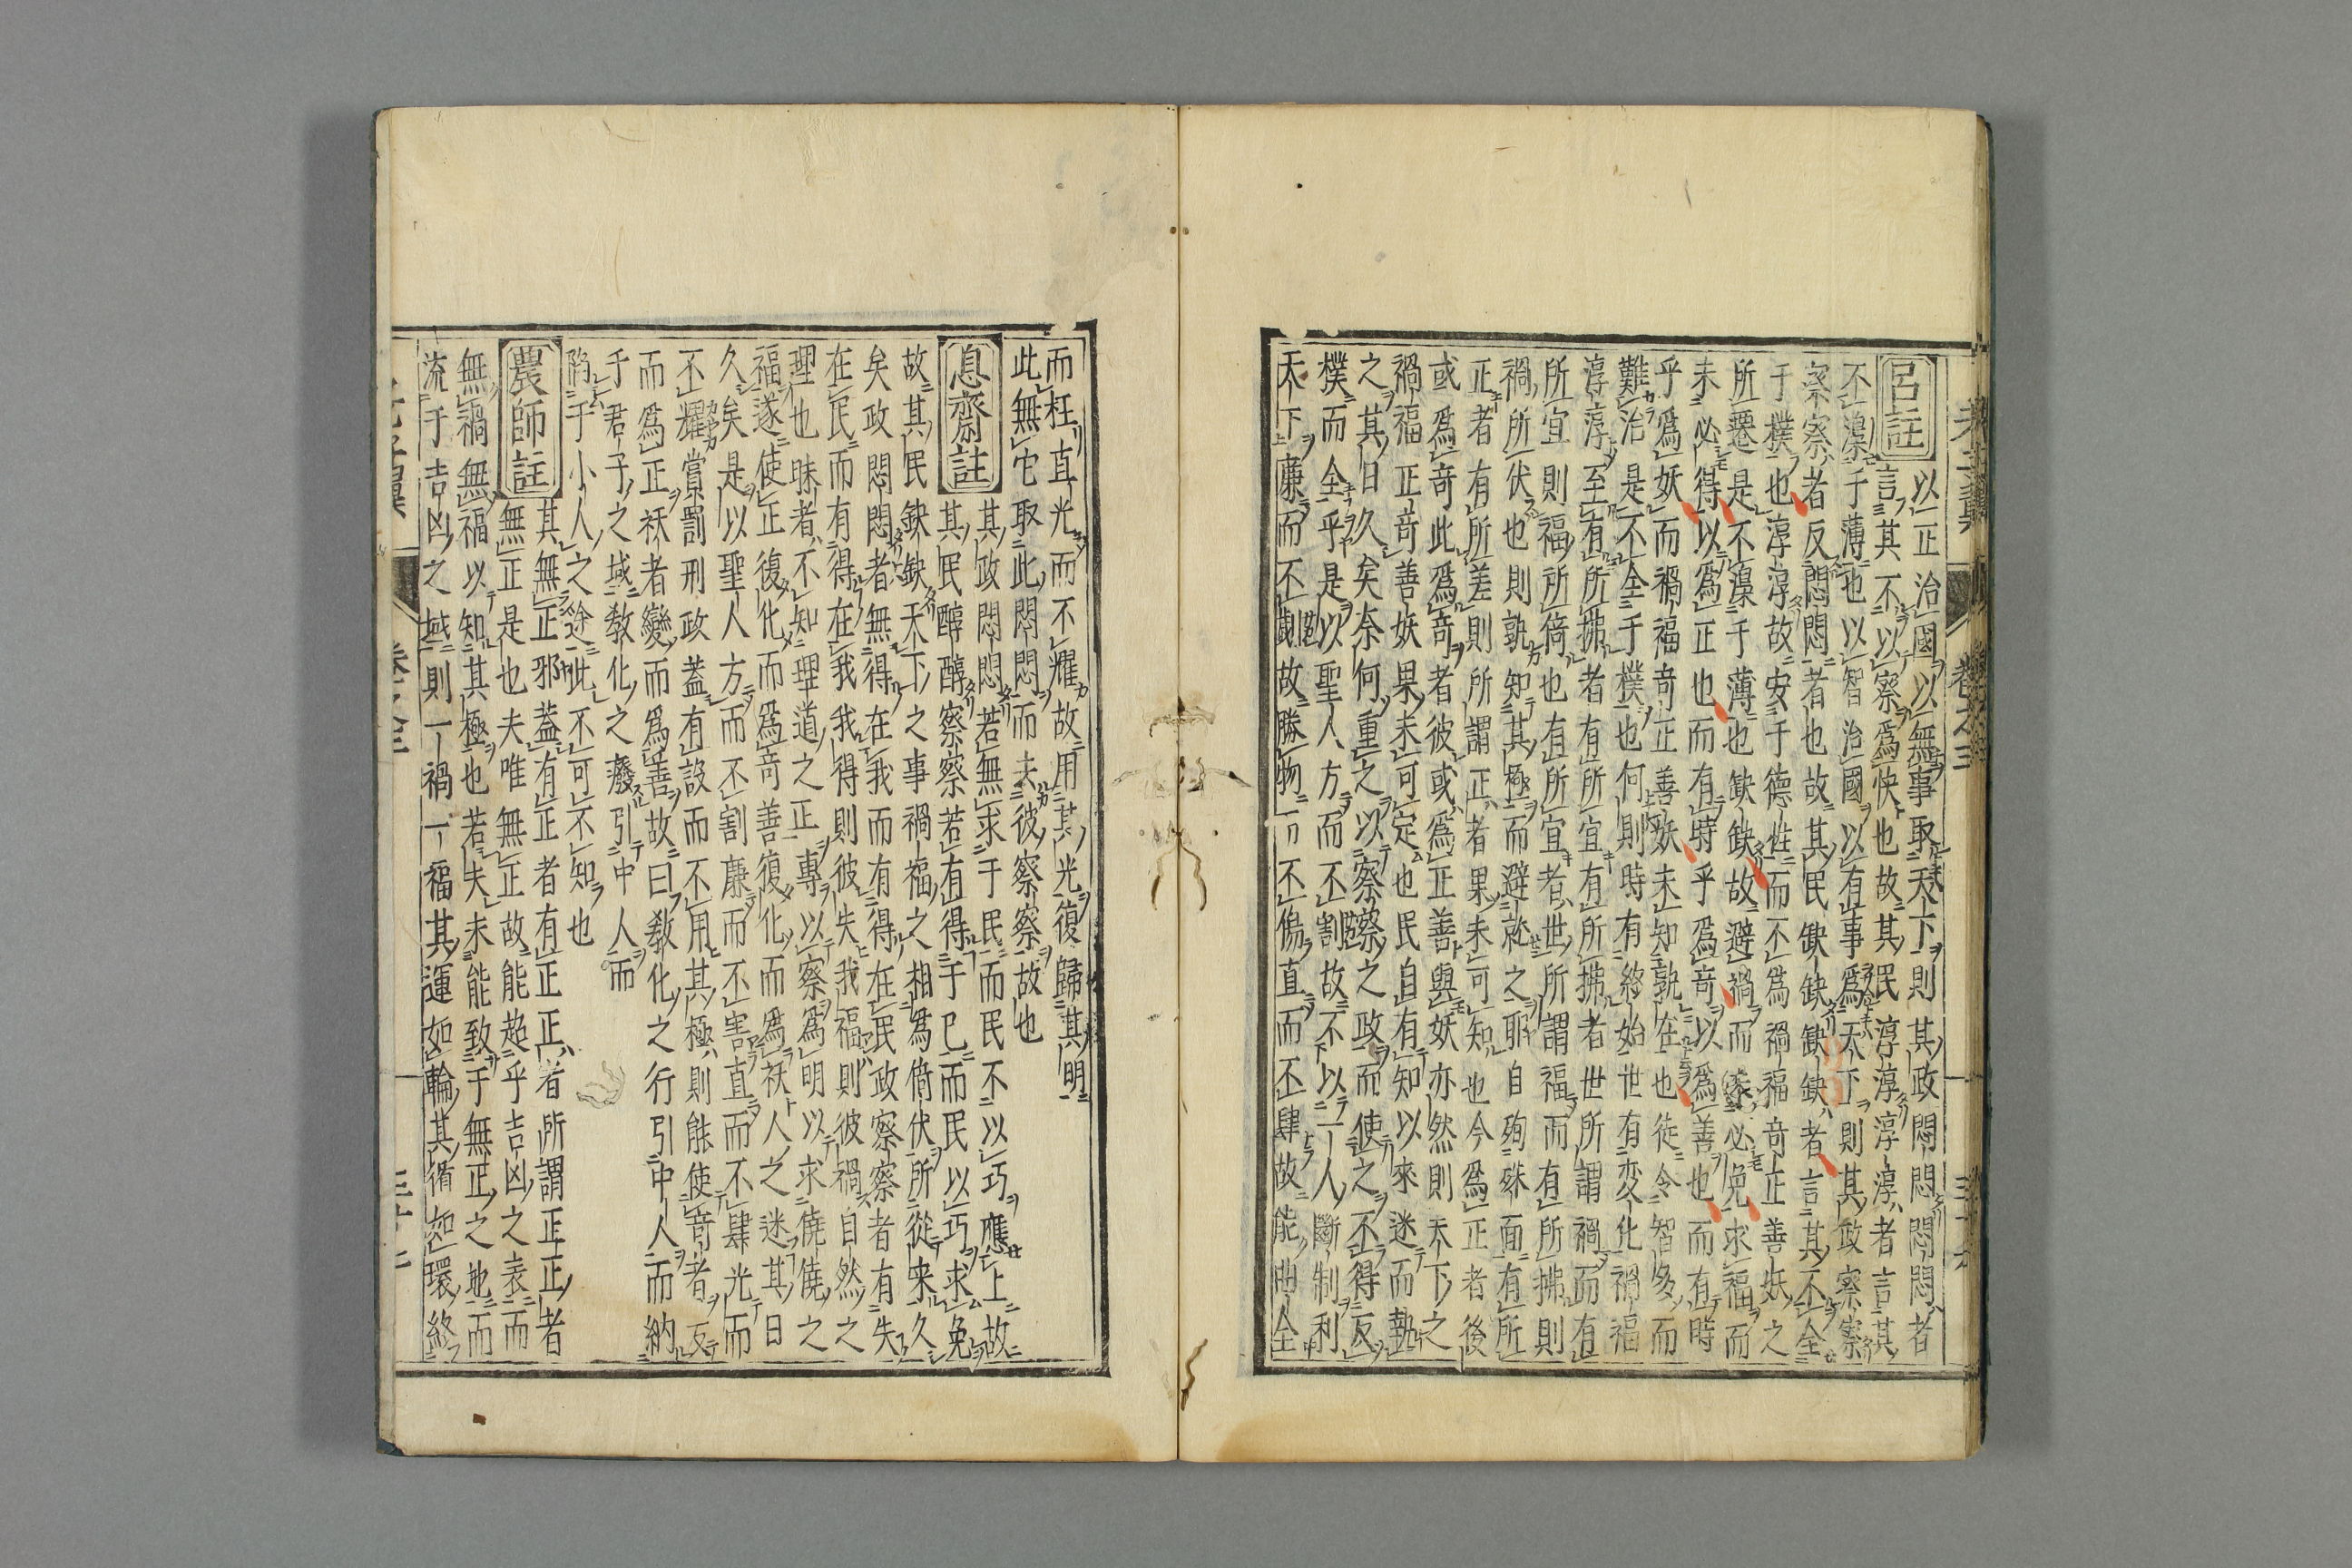 呂註以正治國以無事取天下則其政悶悶悶悶者
言其不以察爲快也故其民淳淳淳淳者言其
不澆于薄也以智治國以有事爲天下則其政察察
察察者反悶悶者也故其民缺缺缺缺者言其不全
于樸也淳淳故安于德性而不爲禍福奇正善妖之
所遷是不澆于薄也缺缺故避禍而必免求福而
未必得以爲正也而有時乎爲奇以爲善也而有時
乎爲妖而禍福奇正善妖未知孰在也徒令智多而
難治是不全于樸也何則時有終始世有変化禍福
淳淳至有所拂者有所宜有所拂者世所謂禍而有
所宜則福所倚也有所宜者世所謂福而有所拂則
禍所伏也則孰知其極而避就之耶自殉殊面有所
正者有所差則所謂正者果未可知也今爲正者後
或爲奇此爲奇者彼或爲正善與妖亦然則天下之
禍福正奇善妖果未可定也民自有知以來迷而執
之其日久矣奈何重之以察察之政而使之不得反
樸而全乎是以聖人方而不割故不以一人斷制利
天下廉而不劌故勝物而不傷直而不肆故能曲全
而枉直光而不耀故用其光復歸其明
此無它取此悶悶而夫彼察察故也
息齋註其政悶悶若無求于民而民不以巧應上故
其民醇醇察察若有得于已而民以巧求免
故其民缺缺天下之事禍福之相爲倚伏所從來久
矣政悶悶者無得在我而有得在民政察察者有失
在民而有得在我我得則彼失我福則彼禍自然之
理也昧者不知理道之正專以察爲明以求僥僥之
福遂使正復化而爲奇善復化而爲祅人之迷其日
久矣是以聖人方而不割廉而不害直而不肆光而
不耀賞罰刑政蓋有設而不用其極則能使奇者反
而爲正祅者變而爲善故曰敎化之行引中人而納
于君子之域敎化之廢引中人而
陷于小人之途此不可不知也
農師註其無正邪蓋有正者有正正者所謂正正者
無正是也夫唯無正故能超乎吉凶之表而
無禍無福以知其極也若失未能致于無正之地而
流于吉凶之域則一禍一福其運如輪其循如環終
卷之三